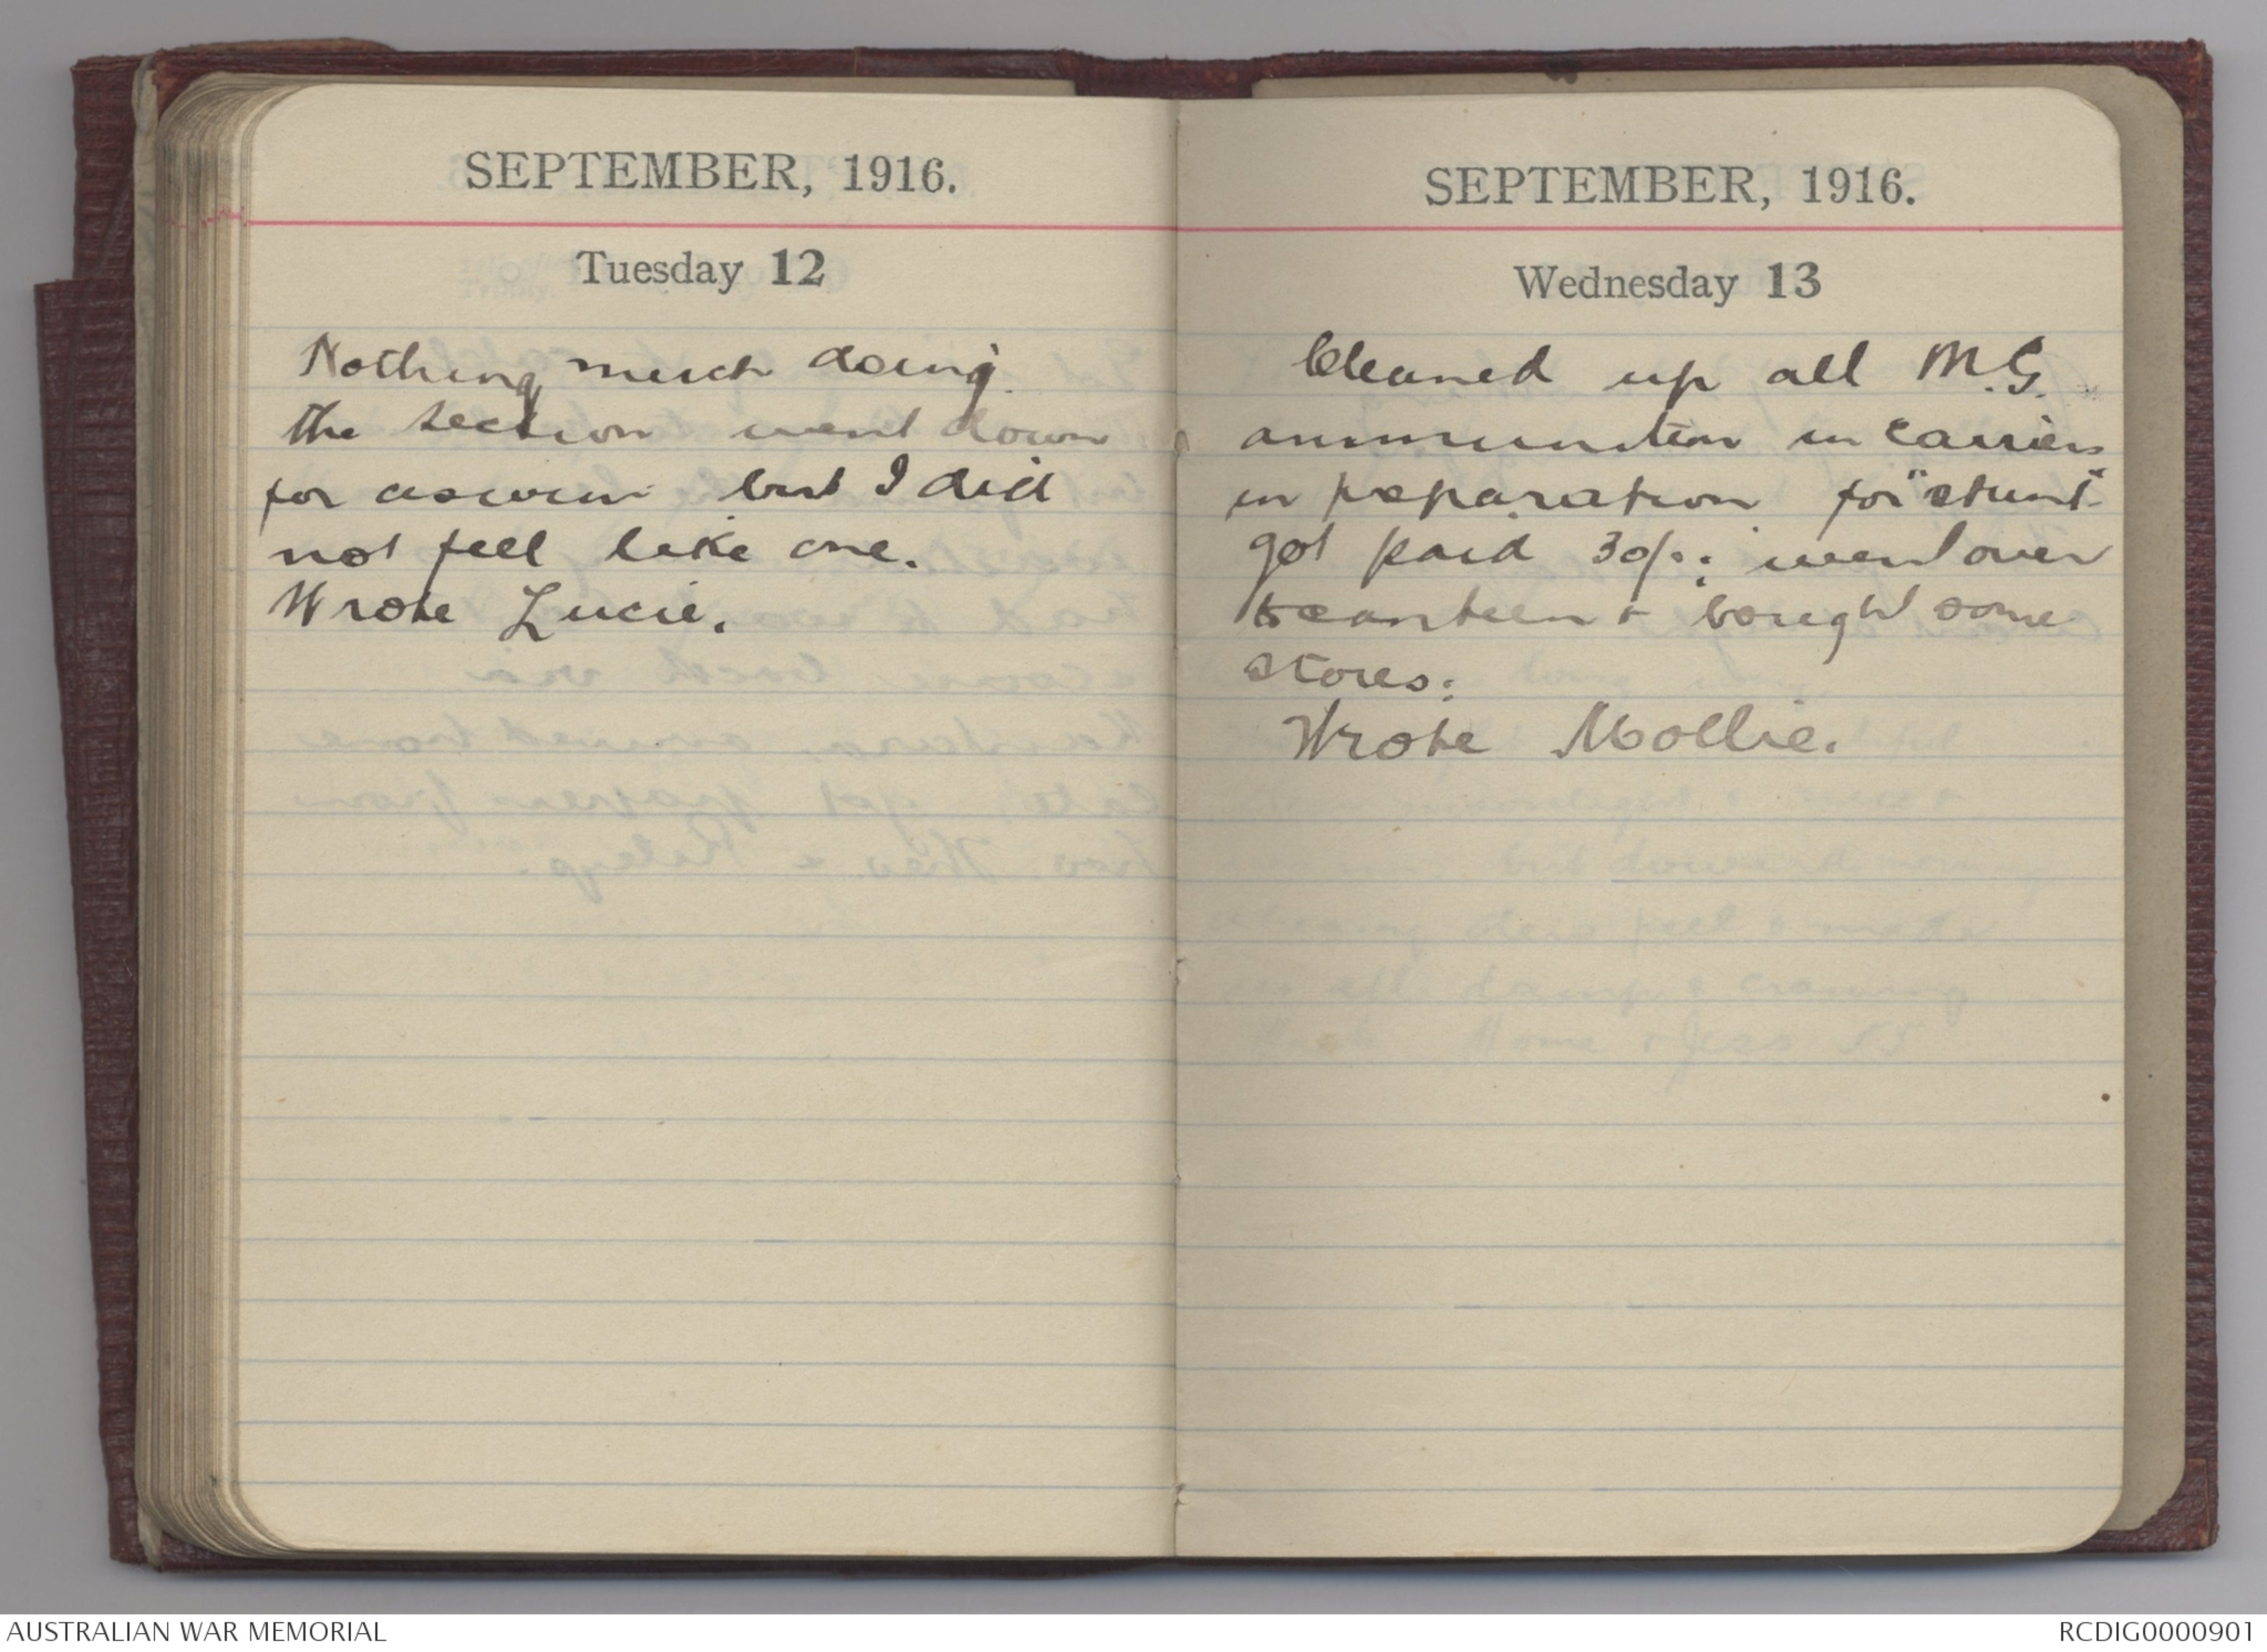 SEPTEMBER, 1916.
Tuesday 12
Nothing much doing.
the section went down
for a swim but I did
not feel like one.
Wrote Lucie.
SEPTEMBER, 1916.
Wednesday 13
Cleaned up all M.G.
ammunition in carriers
in preparation for "stunt"
got paid 30/-; went over
to canteen & bought some
stores:
Wrote Mollie.
AUSTRALIAN WAR MEMORIAL
RCDIG0000901